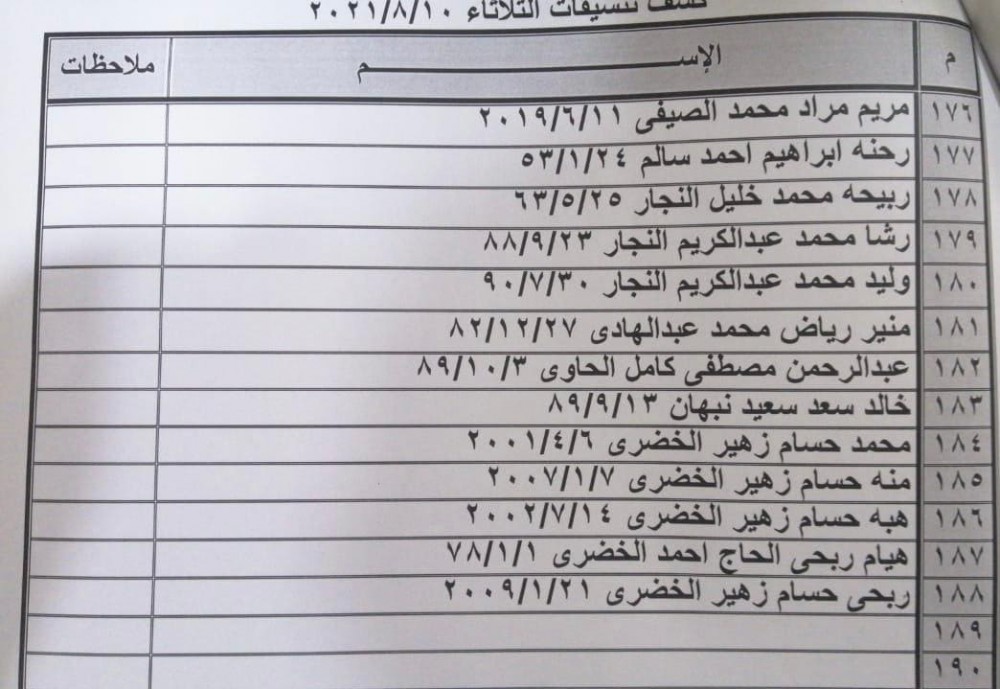 كشف تنسيقات الثلاثاء ٢٠٢١/٨/١٠
م الإســـــــــم ملاحظات
١٧٦ مريم مراد محمد الصيفى ٢٠١٩/٦/١١
١٧٧ رحنه ابراهيم احمد سالم ٥٣/١/٢٤
١٧٨ ربيحه محمد خليل النجار ٦٣/٥/٢٥
١٧٩ رشا محمد عبدالكريم النجار ٨٨/٩/٢٣
١٨٠ وليد محمد عبدالكريم النجار ٩٠/٧/٣٠
١٨١ منير رياض محمد عبدالهادى ٨٢/١٢/٢٧
١٨٢ عبدالرحمن مصطفى كامل الحاوى ٨٩/١٠/٣
١٨٣ خالد سعد سعيد نبهان ٨٩/٩/١٣
١٨٤ محمد حسام زهير الخضرى ٢٠٠١/٤/٦
١٨٥ منه حسام زهير الخضرى ٢٠٠٧/١/٧
١٨٦ هبه حسام زهير الخضرى ٢٠٠٢/٧/١٤
١٨٧ هيام ربحى الحاج احمد الخضرى ٧٨/١/١
١٨٨ ربحى حسام زهير الخضرى ٢٠٠٩/١/٢١
١٨٩
١٩٠